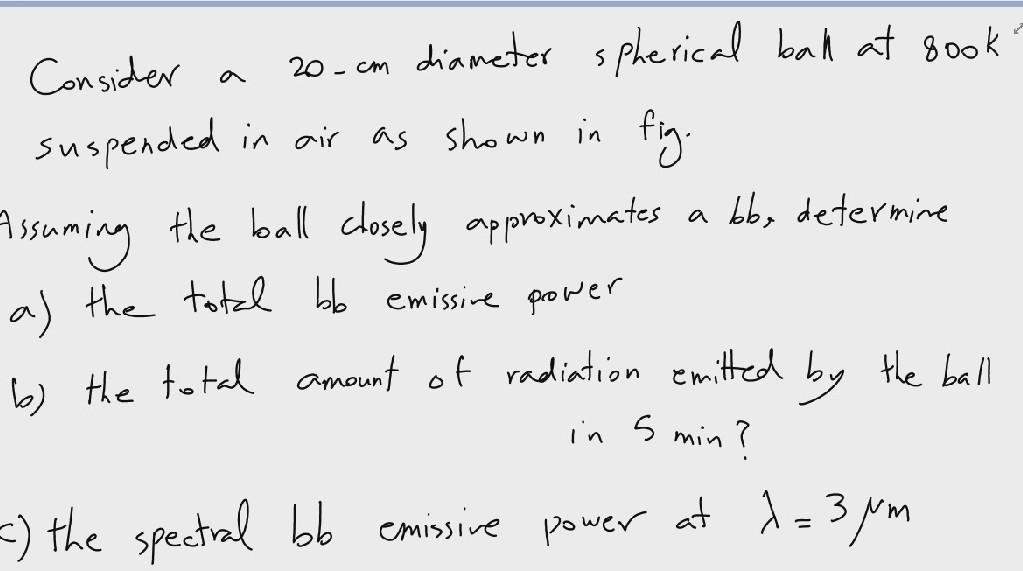 Consider a 20-cm diameter spherical ball at 800k
suspended in air as shown in fig.
Assuming the ball closely approximates a bb, determine
a) the total bb emissive power
b) the total amount of radiation emitted by the ball
in 5 min?
c) the spectral bb emissive power at λ = 3 μm